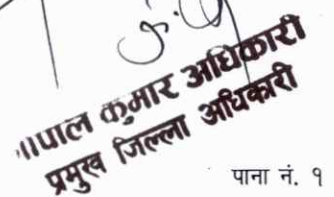 कुमार अधिकारी
प्रमुख जिल्ला अधिकारी
पाना नं. १